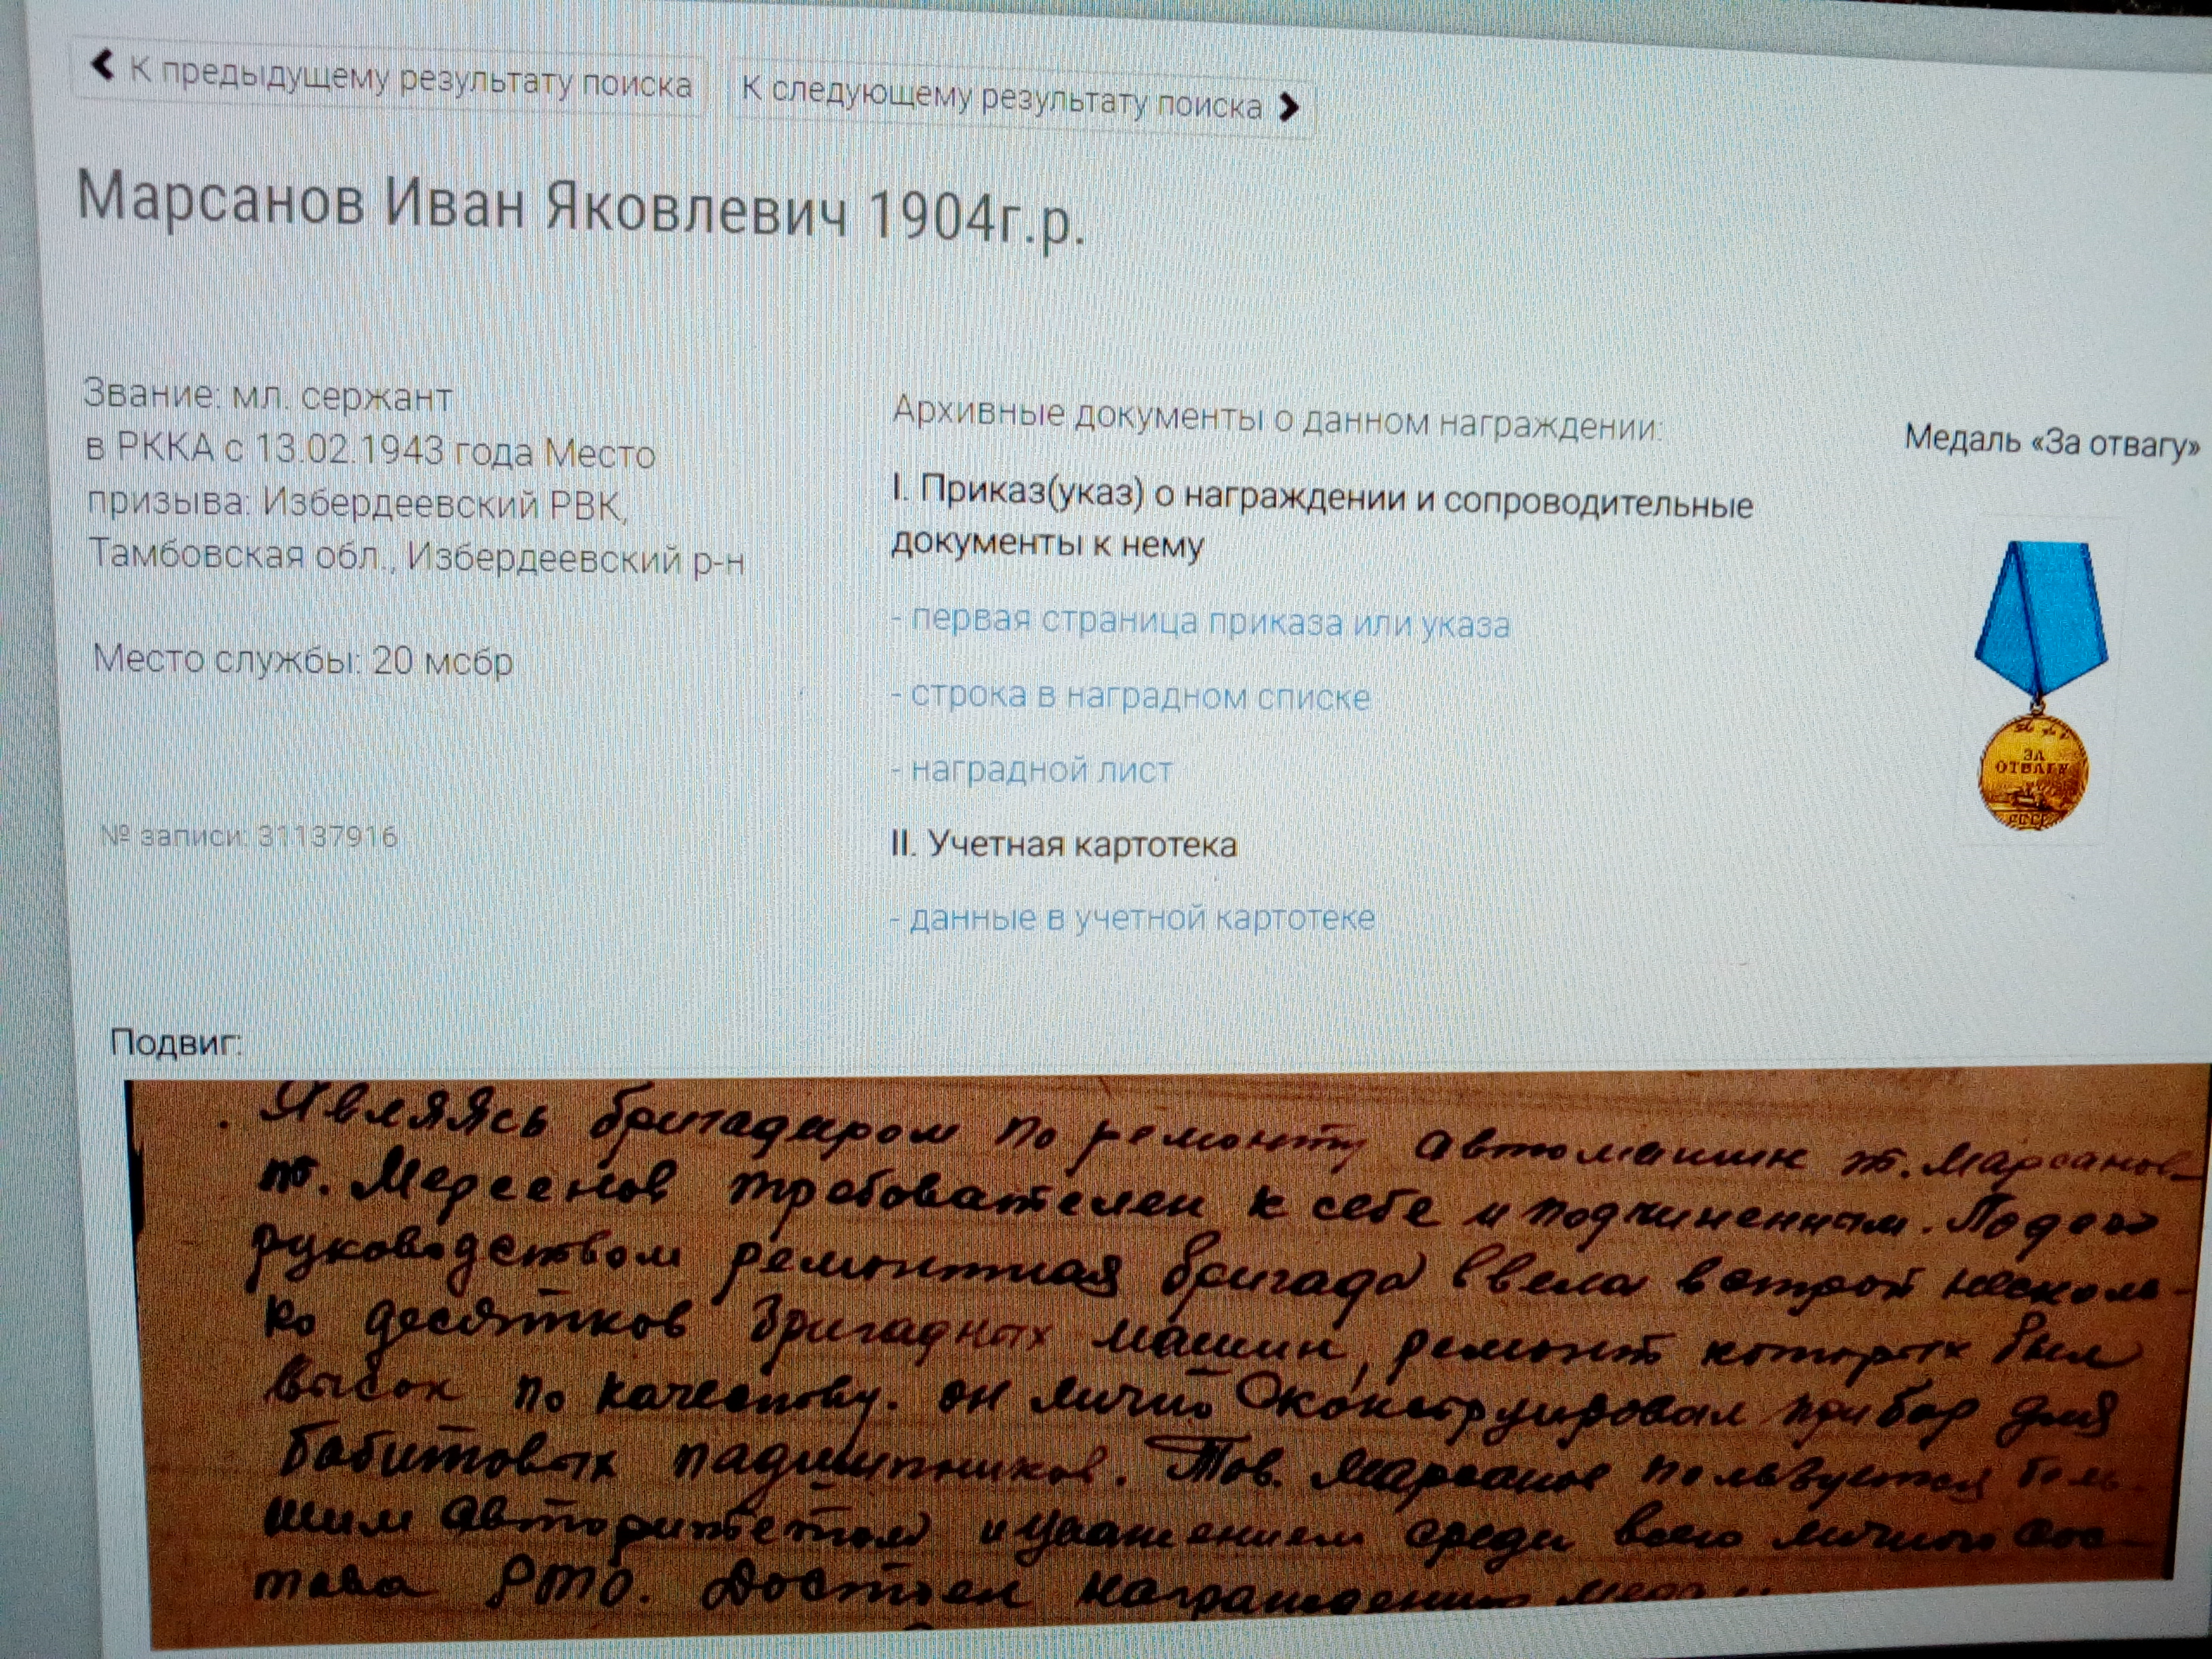 К предыдущему результату поиска
К следующему результату поиска
Марсанов Иван Яковлевич 1904г.р.
Звание: мл. сержант
в РККА с 13.02.1943 года Место
призыва: Избердеевский РВК,
Тамбовская обл., Избердеевский р-н
Место службы: 20 мсбр
№ записи: 31137916
Архивные документы о данном награждении:
I. Приказ(указ) о награждении и сопроводительные
документы к нему
- первая страница приказа или указа
- строка в наградном списке
- наградной лист
II. Учетная картотека
- данные в учетной картотеке
Медаль «За отвагу»
ЗА
ОТВАГУ
СССР
Подвиг:
Являясь бригадиром по ремонту автомашин т. Марсанов
т. Марсанов требователен к себе и подчиненным. Под его
руководством ремонтная бригада ввела в строй несколь-
ко десятков бригадных машин, ремонт которых был
высок по качеству. он лично сконструировал прибор для
бабитовых падшипников. Тов. Марсанов пользуется боль-
шим авторитетом и уважением среди всего личного сос-
тава РТО. Достоен награждения